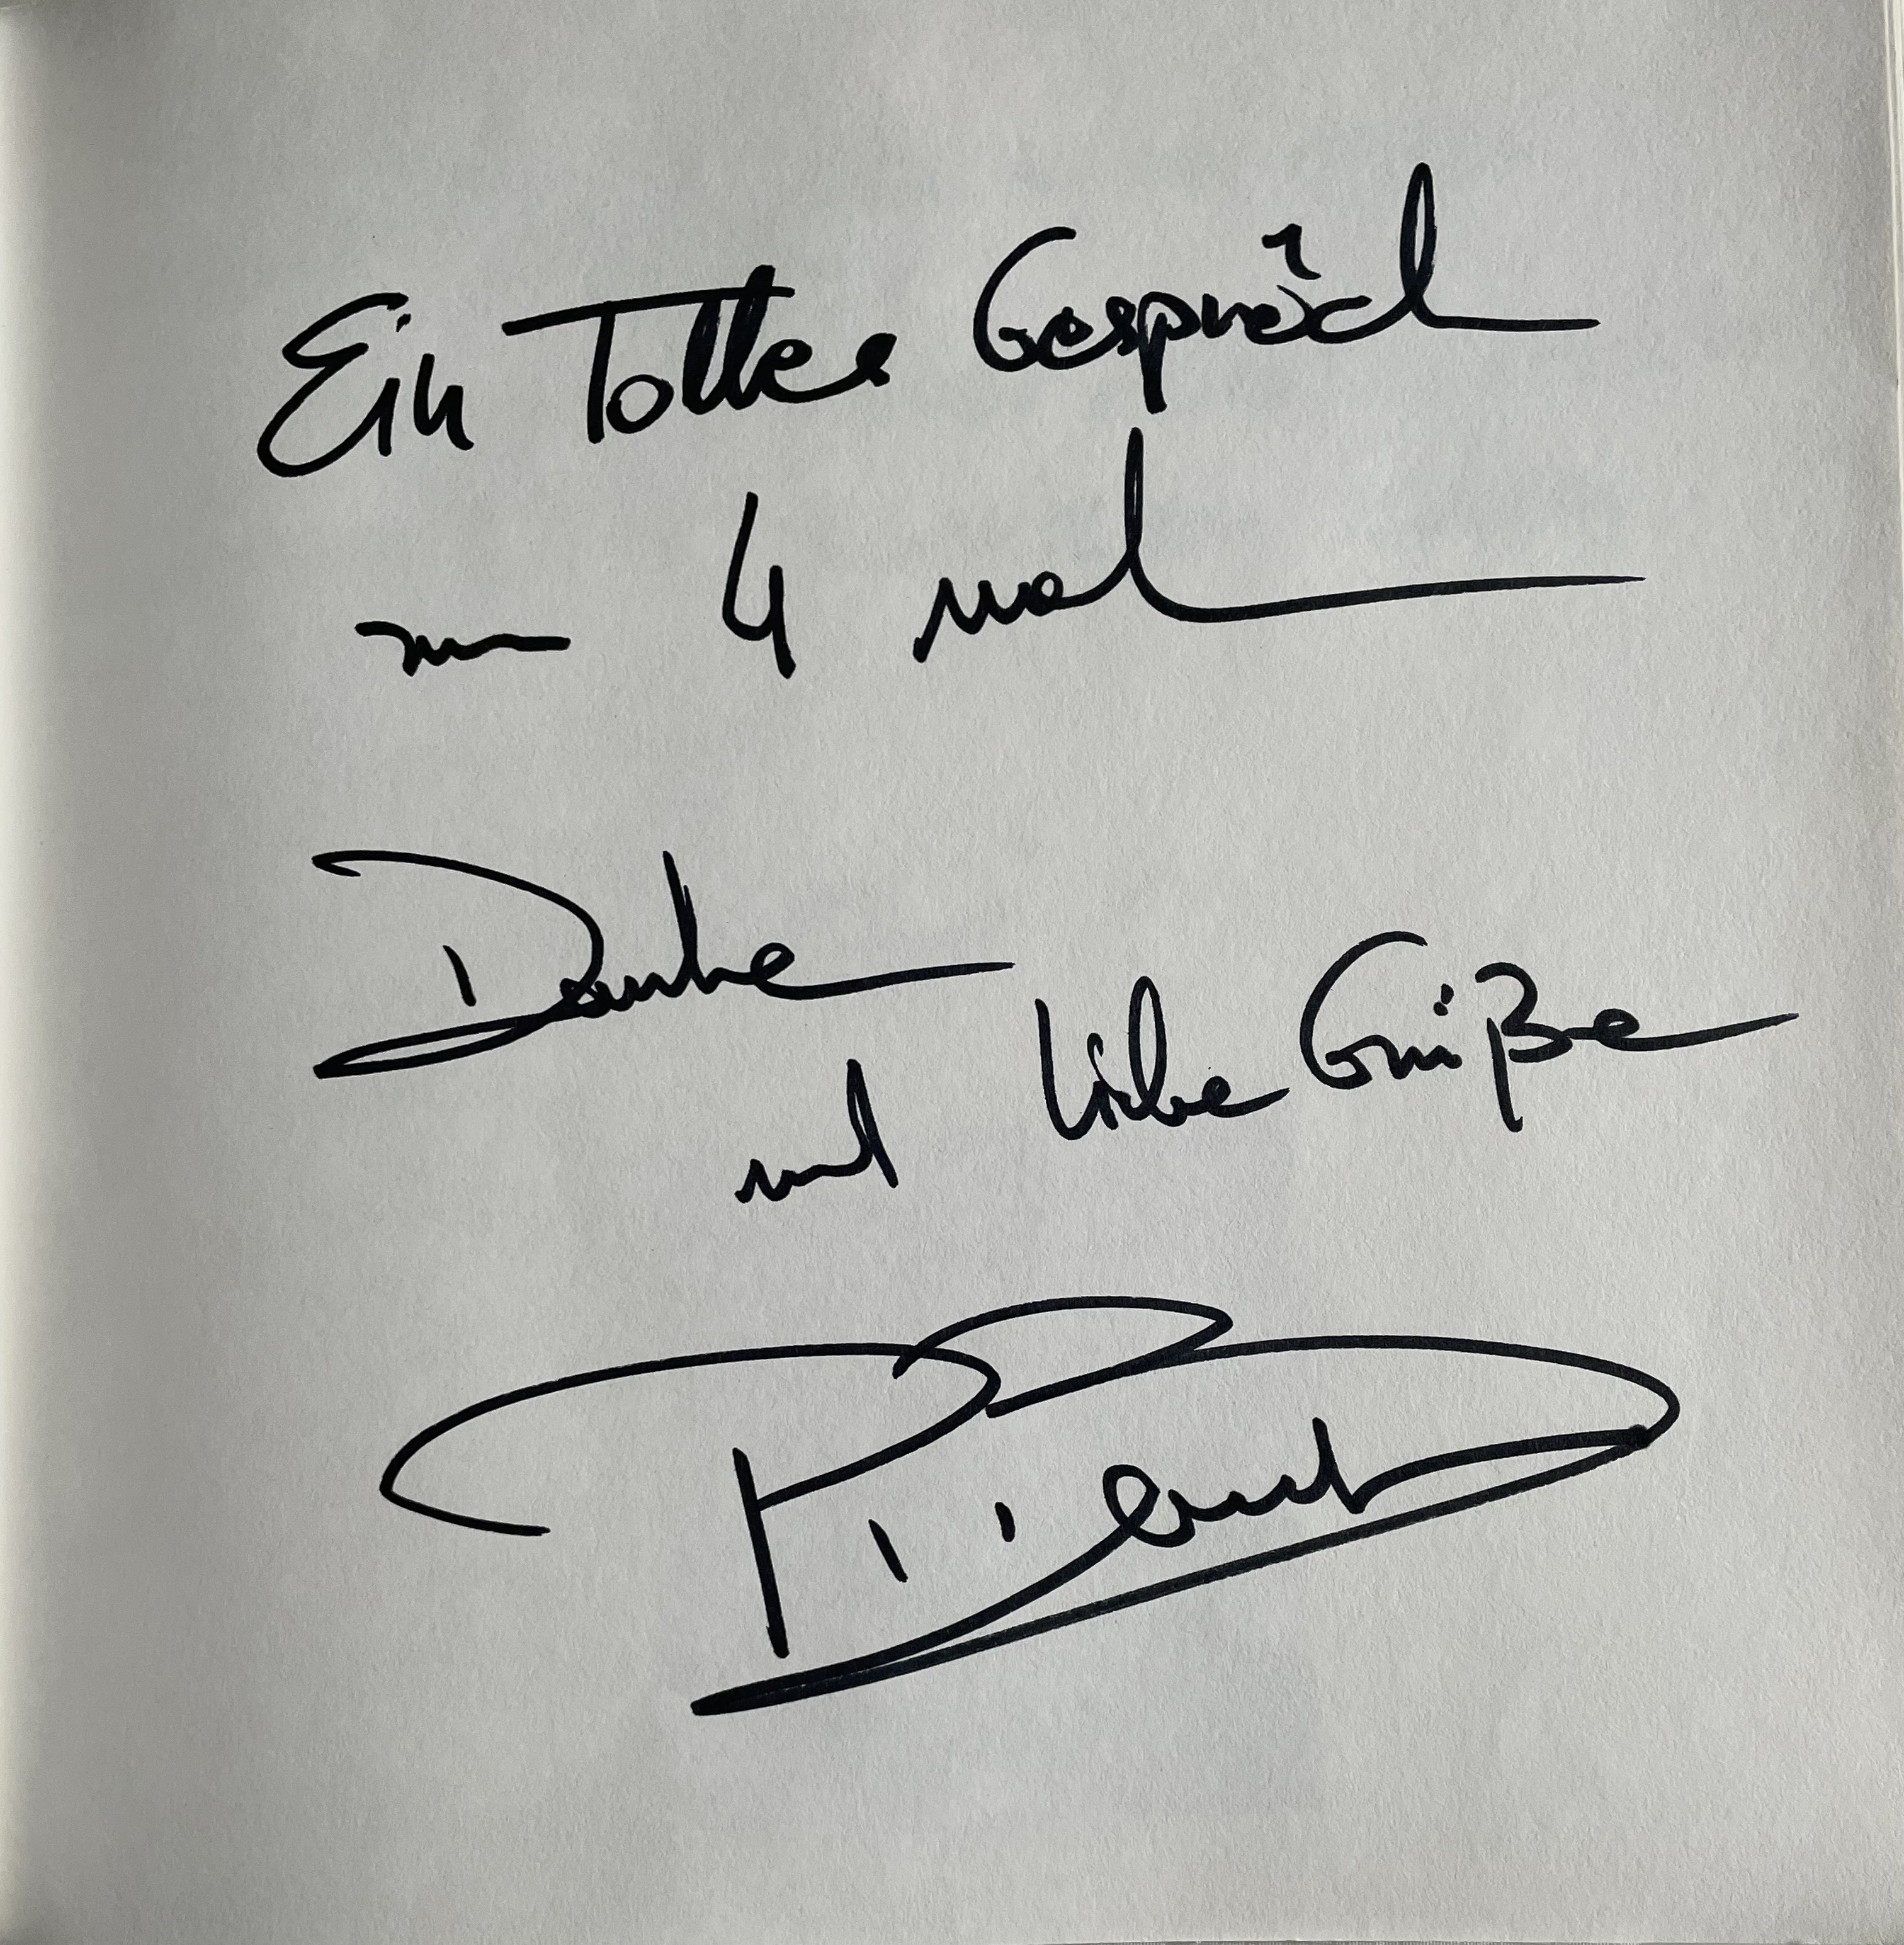 Ein Tolles Gespräch
4 mal
Danke
und liebe Grüße